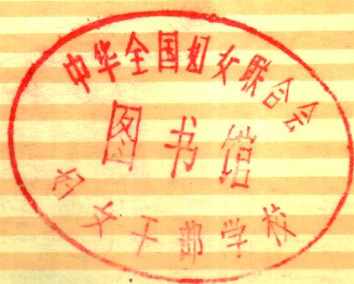 中华全国妇女联合会
图书馆
妇女干部学校